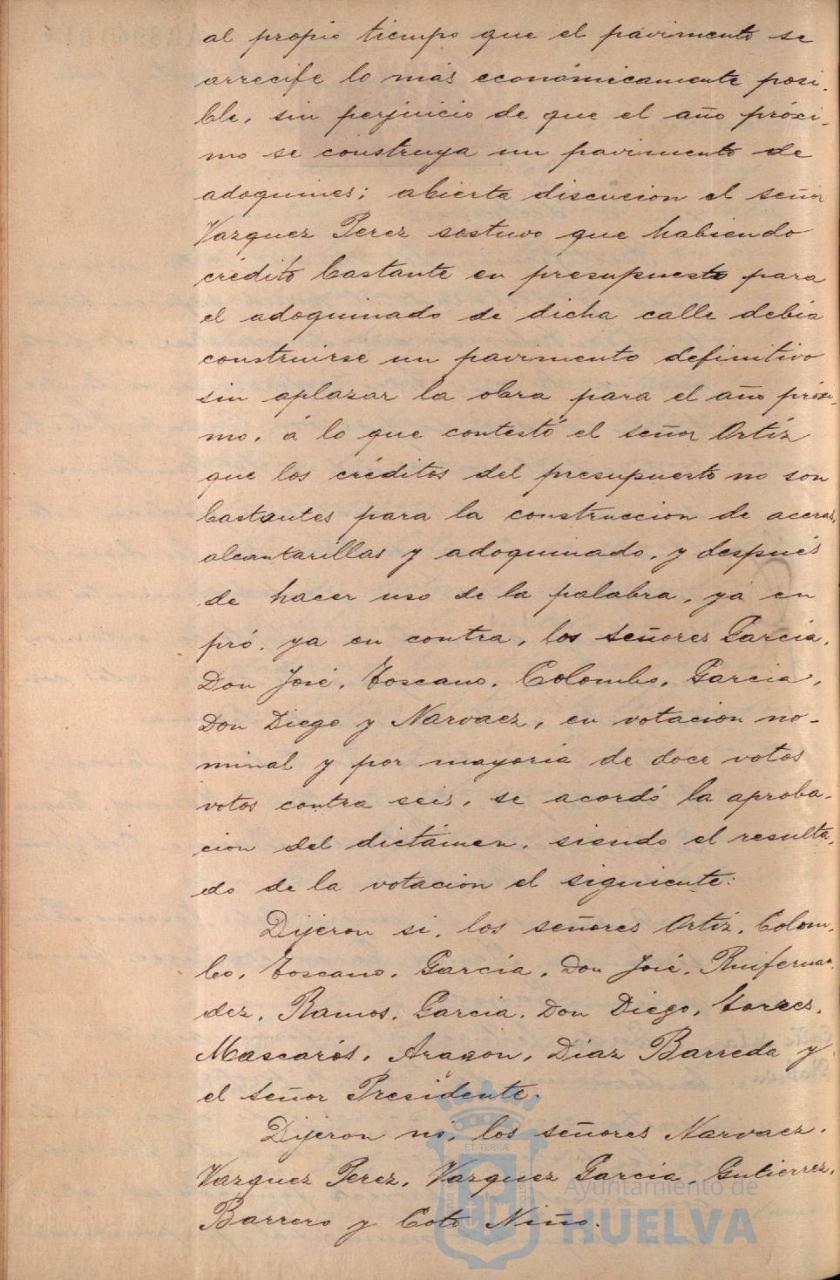 al propio tiempo que el pavimento se
arrecife lo más económicamente posi-
ble, sin perjuicio de que el año próxi-
mo se construya un pavimento de
adoquines; abierta discucion el señor
Vazquez Perez sostuvo que habiendo
crédito bastante en presupuesto para
el adoquinado de dicha calle debia
construirse un pavimento definitivo
sin aplazar la obra para el año próxi-
mo, á lo que contestó el señor Ortíz
que los créditos del presupuesto no son
bastantes para la construccion de aceras,
alcantarillas y adoquinado, y después
de hacer uso de la palabra, ya en
pró, ya en contra, los señores García,
Don José, Toscano, Colombo, Garcia,
Don Diego y Narvaez, en votacion no-
minal y por mayoría de doce votos
votos contra seis, se acordó la aproba-
cion del dictámen, siendo el resulta-
do de la votación el siguiente:
Dijeron si, los señores Ortíz, Colom-
bo, Toscano, García, Don José, Ruifernan-
dez, Ramos, Garcia, Don Diego, Torres,
Mascarós, Aragon, Díaz Barreda y
el señor Presidente.
Dijeron no, los señores Narvaez,
Vazquez Perez, Vazquez García, Gutierrez,
Barrero y Coto Niño.
Ayuntamiento de
HUELVA